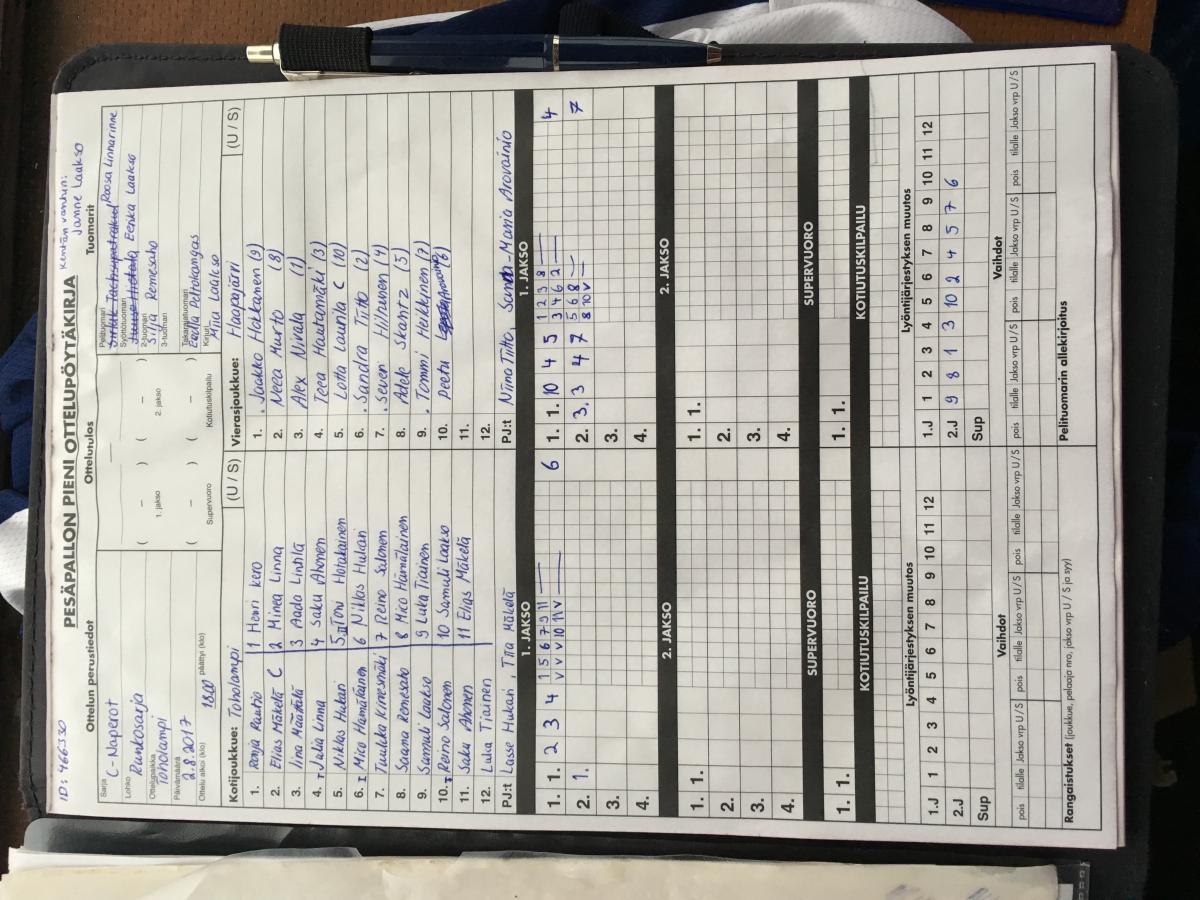 ID: 466330
PESÄPALLON PIENI OTTELUPÖYTÄKIRJA
Kentän vanhin:
Janne Laakso
Ottelun perustiedot
Ottelutulos
Tuomarit
Sarja
C-Naperot
Lohko
Runkosarja
Ottelupaikka
Toholampi
Päivämäärä
2.8.2017
Ottelu alkoi (klo) 18.00 päättyi (klo)
( – ) ( – )
1. jakso 2. jakso
( – ) ( – )
Supervuoro Kotiutuskilpailu
Pelituomari
Roosa Linnarinne
Syöttötuomari
Eenka Laakso
2-tuomari
Silja Remesaho
3-tuomari
Takarajatuomari
Eedla Peltokangas
Kirjuri
Miia Laakso
Kotijoukkue: Toholampi (U / S)
1. Ronja Rautio 1 Henri Kero
2. Elias Mäkelä C 2 Minea Linna
3. Iina Määttälä 3 Aada Lintilä
4. Julia Linna 4 Saku Ahonen
5. Niklas Hukari 5 Toni Hotakainen
6. Mico Hämäläinen 6 Niklas Hukari
7. Tuulika Kinesmäki 7 Reino Salonen
8. Saana Remesaho 8 Mico Hämäläinen
9. Samuli Laakso 9 Luka Tiainen
10. Reino Salonen 10 Samuli Laakso
11. Saku Ahonen 11 Elias Mäkelä
12. Luka Tiainen
PJ:t Lasse Hukari, Tiia Mäkelä
Vierasjoukkue: Haapajärvi (U / S)
1. Jaakko Hakkanen (9)
2. Neea Murto (8)
3. Alex Nivala (1)
4. Teea Hautamäki (3)
5. Lotta Laurila C (10)
6. Sandra Tiitto (2)
7. Severi Hiltunen (4)
8. Adele Skantz (5)
9. Tommi Heikkinen (7)
10. Peetu Arovainio (6)
11.
12.
PJ:t Nina Tiitto, Sanna-Maria Arovainio
1. JAKSO 1. JAKSO
1. 1. 2 3 4 1 5 6 7 9 11 6
V V V 10 11 V
2. 1.
3.
4.
1. 1. 10 4 5 1 2 3 8 4
3 4 6 2
2. 3, 3 4 7 5 6 8 7
8 10 V
3.
4.
2. JAKSO 2. JAKSO
1. 1. 1. 1.
2. 2.
3. 3.
4. 4.
SUPERVUORO SUPERVUORO
1. 1. 1. 1.
KOTIUTUSKILPAILU KOTIUTUSKILPAILU
Lyöntijärjestyksen muutos Lyöntijärjestyksen muutos
1.J 1 2 3 4 5 6 7 8 9 10 11 12 1.J 1 2 3 4 5 6 7 8 9 10 11 12
2.J 2.J 9 8 1 3 10 2 4 5 7 6
Sup Sup
Vaihdot Vaihdot
pois tilalle Jakso vrp U/S pois tilalle Jakso vrp U/S pois tilalle Jakso vrp U/S pois tilalle Jakso vrp U/S pois tilalle Jakso vrp U/S pois tilalle Jakso vrp U/S
Rangaistukset (joukkue, pelaaja nro, jakso vrp U / S ja syy)
Pelituomarin allekirjoitus